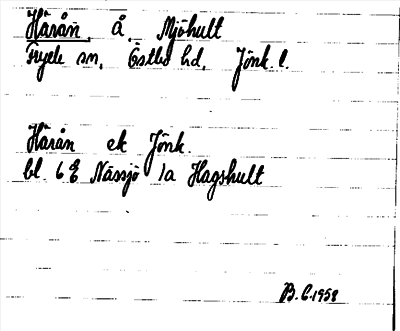 Härån, å, Mjöhult
Fryele sn, Östbo hd, Jönk. l.
Härån ek Jönk.
bl. 6E Nässjö 1a Hagshult
B.C. 1958